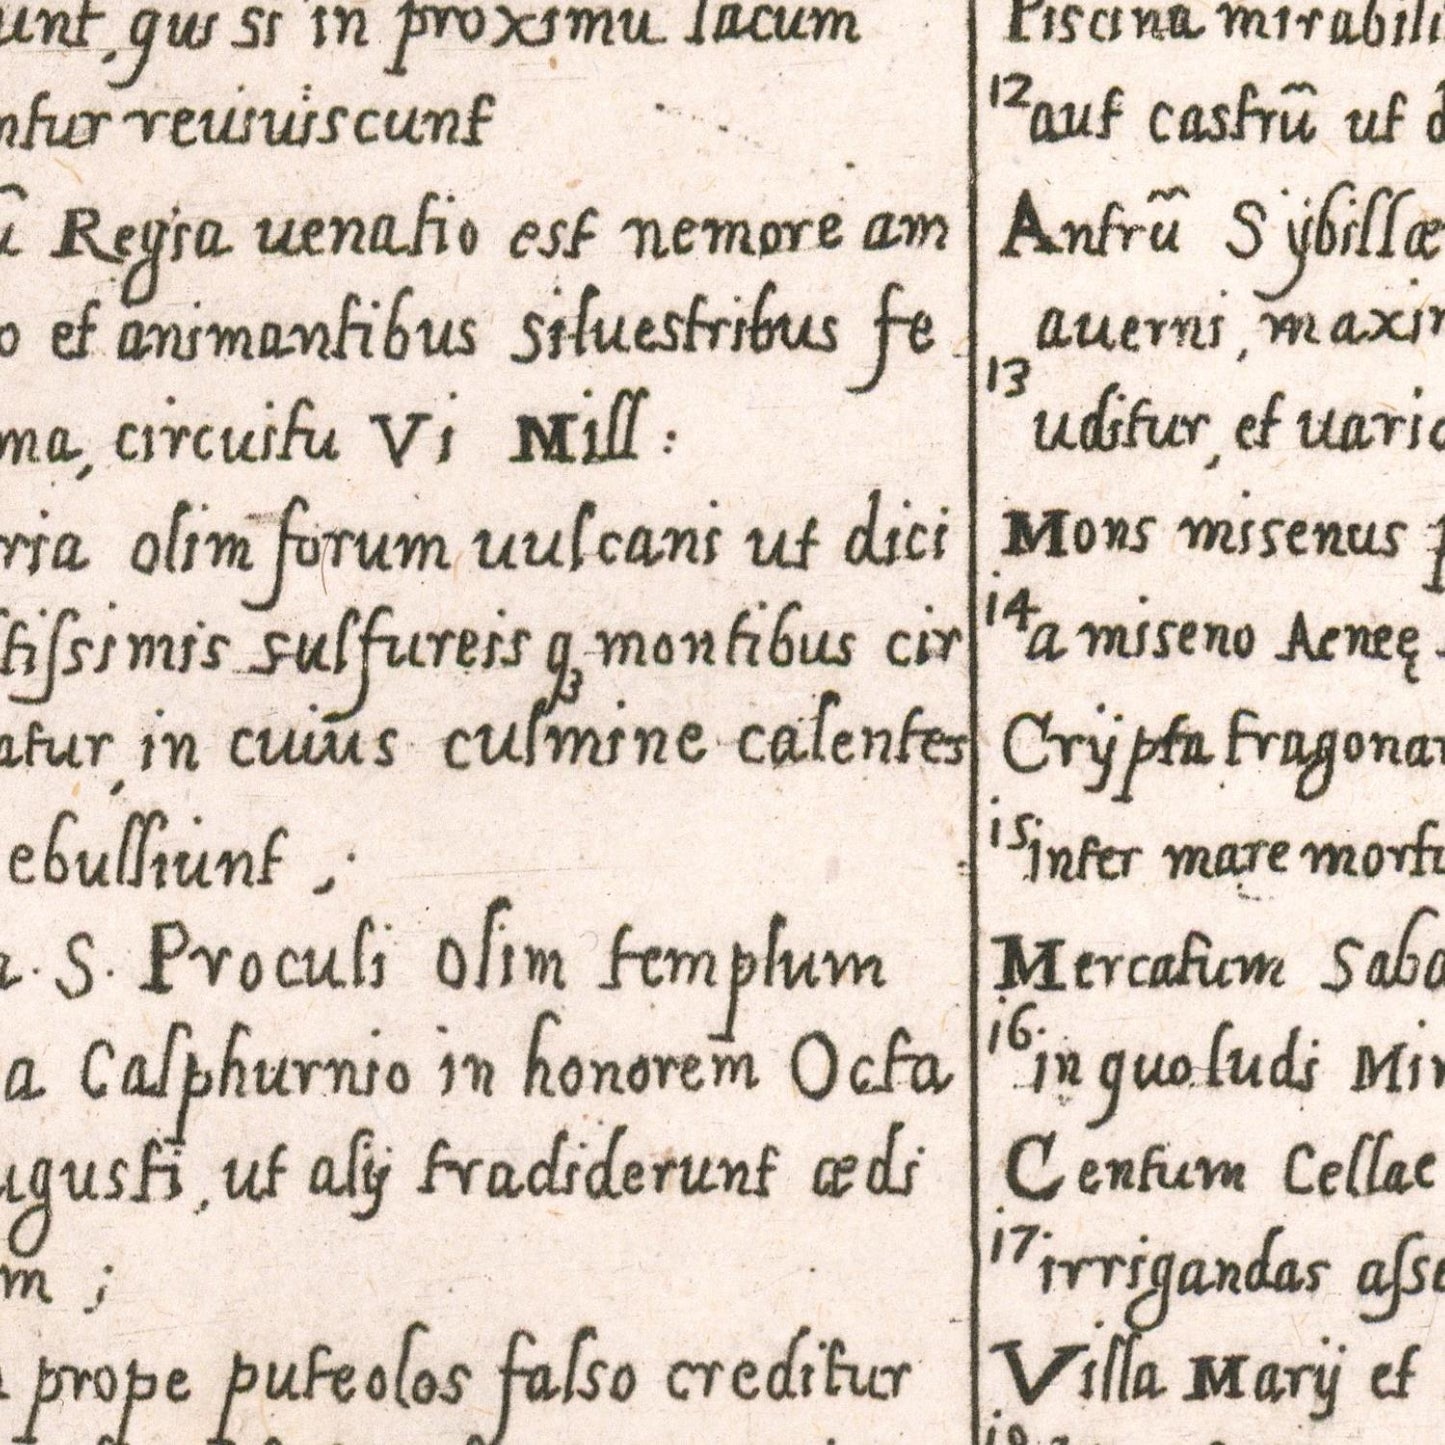 unt, qui si in proximū lacum
ntur reuiuiscunt
ũ Regia uenatio est nemore am
o et animantibus siluestribus fe
ma, circuitu Vi Mill:
ria olim forum uulcani ut dici
tiſsimis sulfureis q3 montibus cir
atur, in cuius culmine calentes
ebulliunt ;
a. S. Proculi olim templum
a Calphurnio in honorem Octa
ugusti, ut alij tradiderunt ædi
m ;
prope puteolos falso creditur
Piscina mirabili
12 aut castrũ ut d
Antrũ Sÿbillæ
auerni, maxim
13
uditur, et uario
Mons misenus p
14 a miseno Aeneę
Crÿpta tragonar
15 inter mare mortu
Mercatum Saba
16. in quo ludi Mir
Centum Cellae
17 irrigandas aſse
Villa Marÿ et